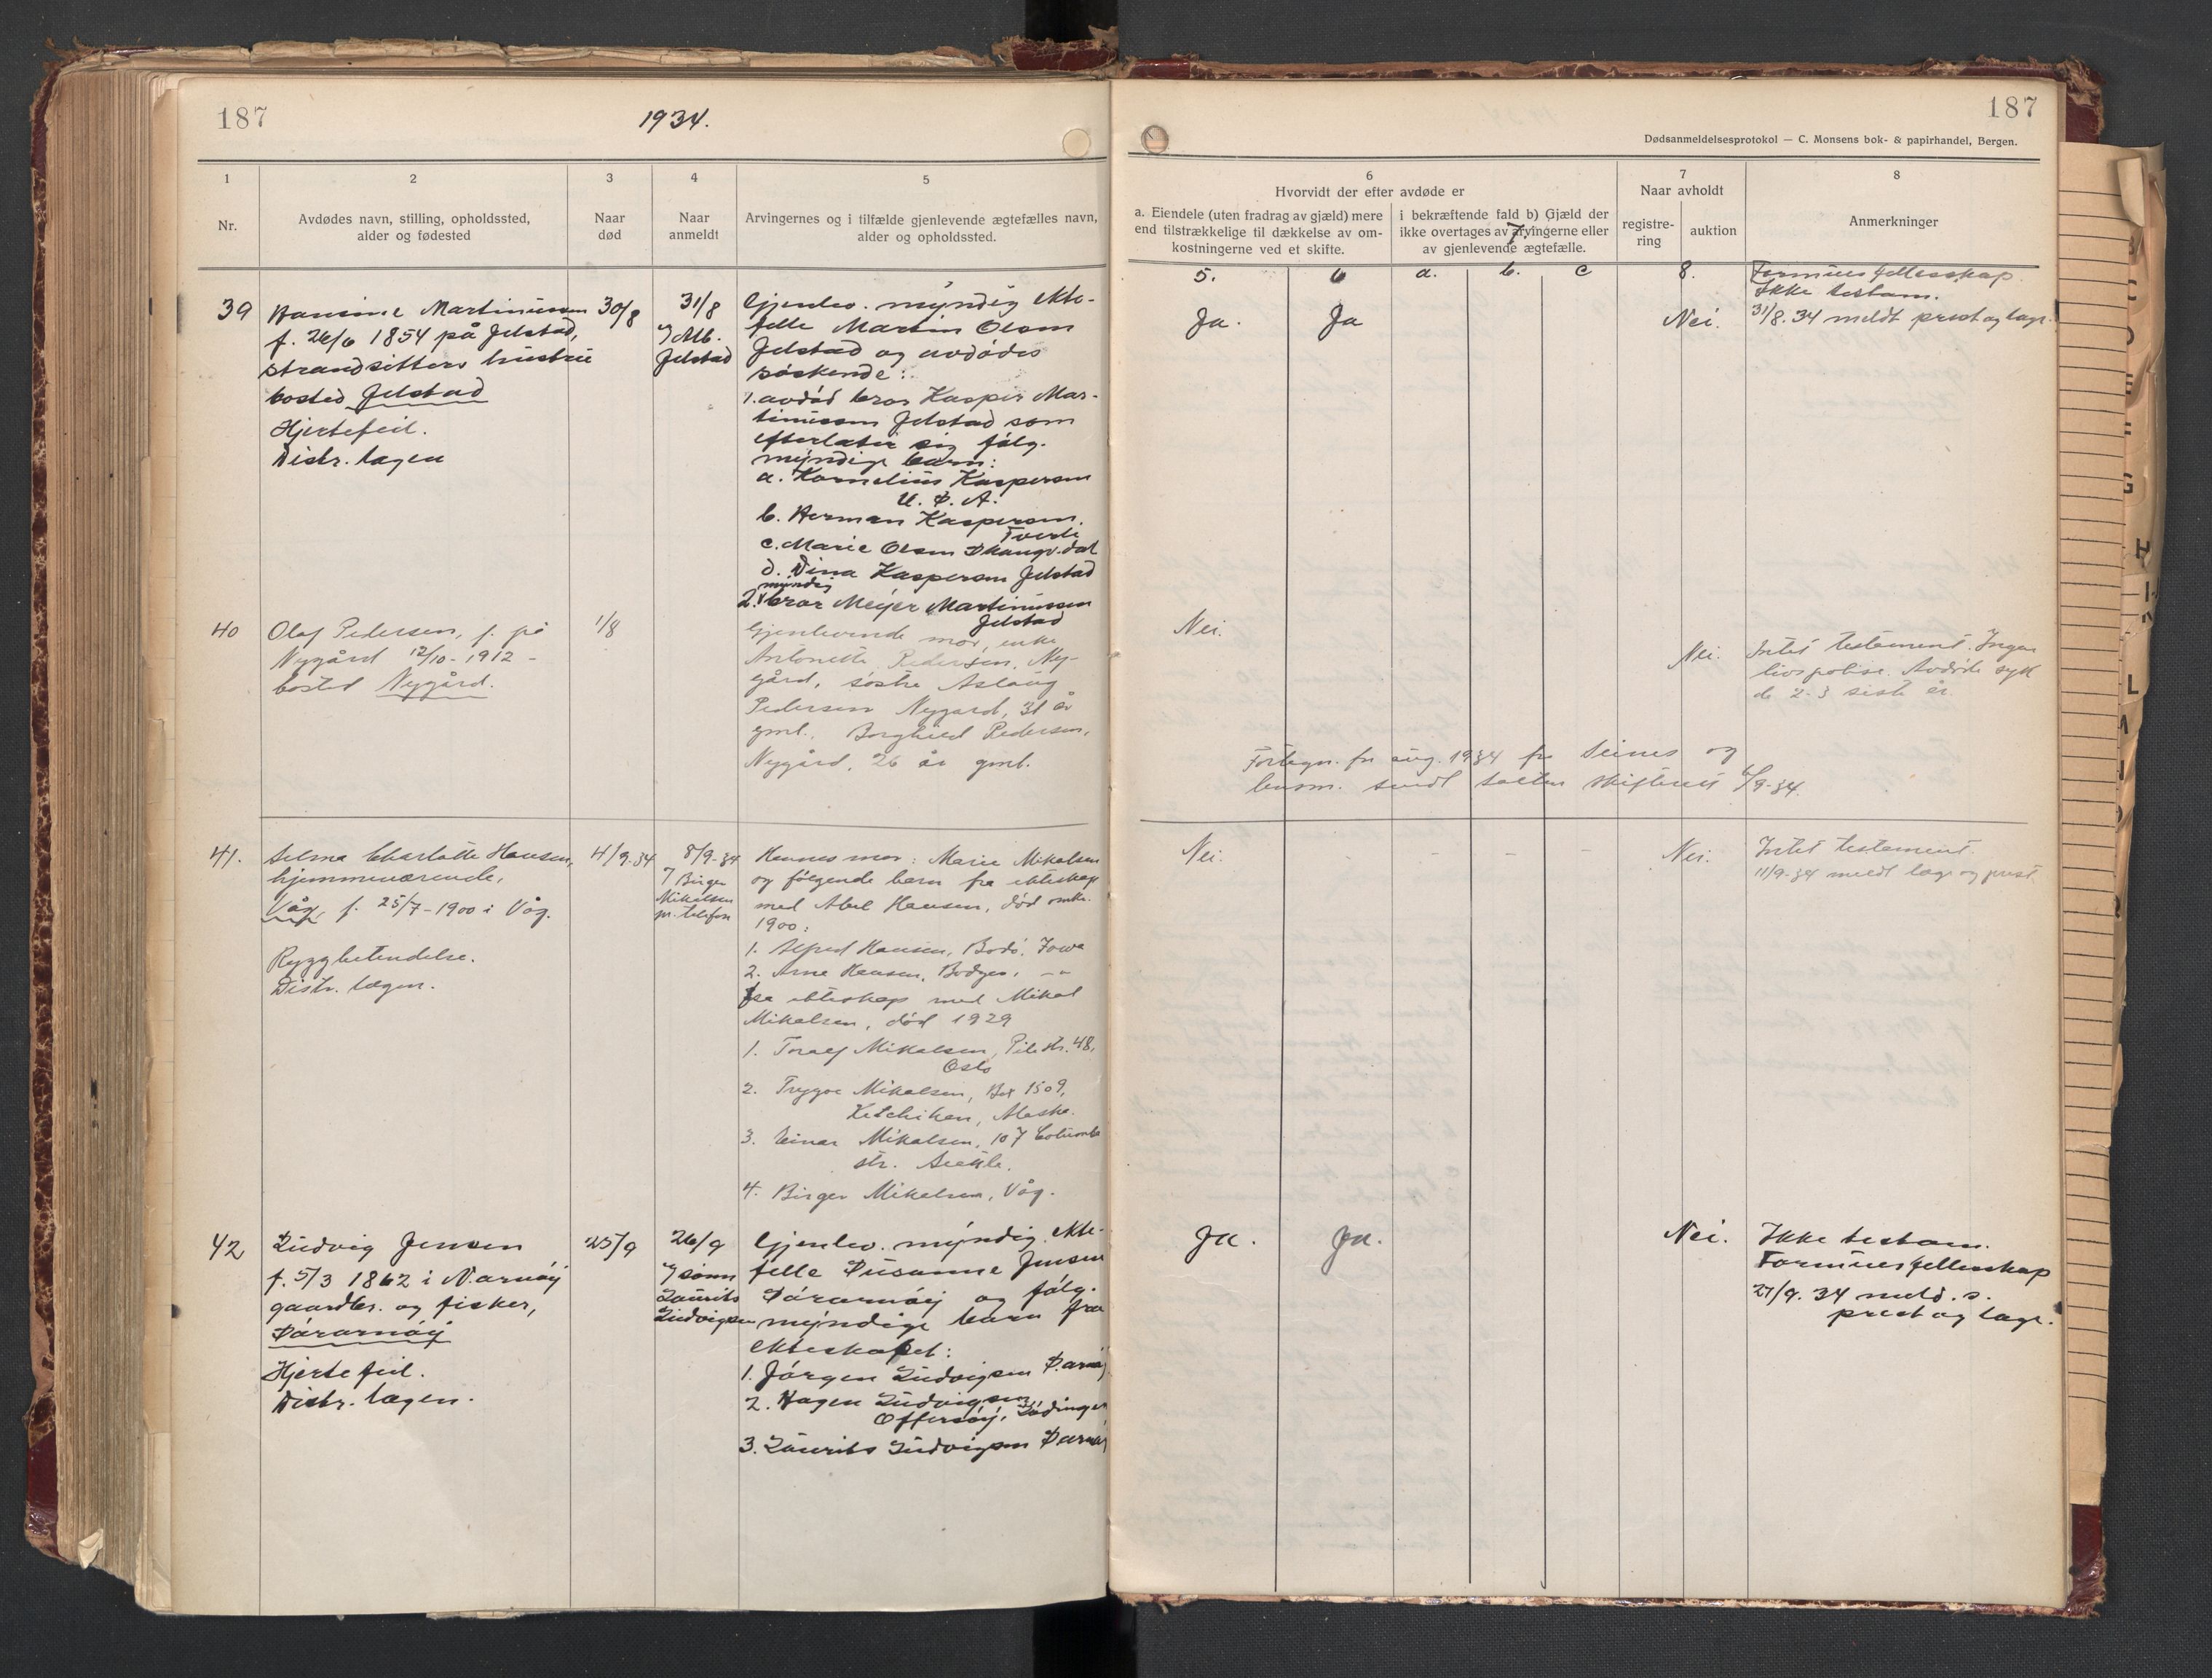 187
1934.
1
2
3
4
5
Nr.
Avdødes navn, stilling, opholdssted,
alder og fødested
Naar
død
Naar
anmeldt
Arvingernes og i tilfælde gjenlevende ægtefælles navn,
alder og opholdssted.
39
Hansine Martinussen
f. 26/6 1854 på Jelstad,
strandsitters hustru
bosted Jelstad
Hjertefeil.
Distr. lægen
30/8
31/8
v/ Alb.
Jelstad
Gjenlev. myndig ekte-
felle Martin Olsen
Jelstad og avdødes
søskende:
1. avdød bror Kasper Mar-
tinussen Jelstad som
efterlater sig følg.
myndige barn:
a. Kornelius Kaspersen
U. S. A.
b. Herman Kaspersen,
Tverli
c. Marie Olsen
d. Dina Kaspersen Jelstad
myndig
2. bror Meyer Martinussen
Jelstad
40
Olaf Pedersen, f. på
Nygård 12/10-1912 -
bosted Nygård.
1/8
Gjenlevende mor, enke
Antonette Pedersen, Ny-
gård, søstre Aslaug
Pedersen Nygard, 31 år
gml., Borghild Pedersen,
Nygård, 26 år gml.
41.
Selma Charlotte Hansen,
hjemmeværende,
Våg f. 25/7-1900 i Våg.
Ryggbetendelse.
Distr. lægen.
4/9-34
8/9-34
v/ Birger
Mikalsen
pr. telefon
Hennes mor: Marie Mikalsen
og følgende barn fra ekteskap
med Abel Hansen, død omkr.
1900:
1. Alfred Hansen, Bode, Iowa
2. Arne Hansen, - " -
fra ekteskap med Mikal
Mikalsen, død 1929
1. Toralf Mikalsen, Pilestr. 48,
Oslo
2. Trygve Mikalsen, Box 1509,
Ketchikan, Alaska.
3. Einar Mikalsen, 107 Columbia
str. Seattle.
4. Birger Mikalsen, Våg.
42
Ludvig Jensen
f. 5/3 1862 i
gaardbr. og fisker,
Sørarnøy
Hjertefeil.
Distr. lægen.
25/9
26/9
v/ sønn
Laurits
Ludvigsen
Gjenlev. myndig ekte-
felle Susanne Jensen
Sørarnøy og følg.
myndige barn fra
ekteskapet:
1. Jørgen Ludvigsen S.arnøy
2. Hagen Ludvigsen,
Offersøy, Lødingen
3. Laurits Ludvigsen S.arnøy
187
Dødsanmeldelsesprotokol — C. Monsens bok- & papirhandel, Bergen.
6
Hvorvidt der efter avdøde er
a. Eiendele (uten fradrag av gjæld) mere
end tilstrækkelige til dækkelse av om-
kostningerne ved et skifte.
i bekræftende fald b) Gjæld der
ikke overtages av arvingerne eller
av gjenlevende ægtefælle.
7
7
Naar avholdt
registre-
ring
auktion
8
Anmerkninger
5.
6
a.
b.
c
8.
Ja.
Ja
Nei.
Formuesfellesskap
Ikke testam.
31/8.34 meldt prest og læge.
Nei.
Nei.
Intet testament. Ingen
livspolise. Avdøde syk
de 2-3 siste år.
Fortegn. for aug. 1934 fra Seines og
lensm. sendt Salten skifterett 6/9-34.
Nei.
-
-
-
-
Nei.
Intet testament.
11/9-34 meldt læge og prest
Ja.
Ja.
Nei.
Ikke testam.
Formuesfellesskap
27/9.34 meld. s.
prest og læge.